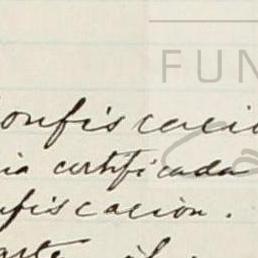 FUN
onfiscació
ia certificada
nfiscación.
arte